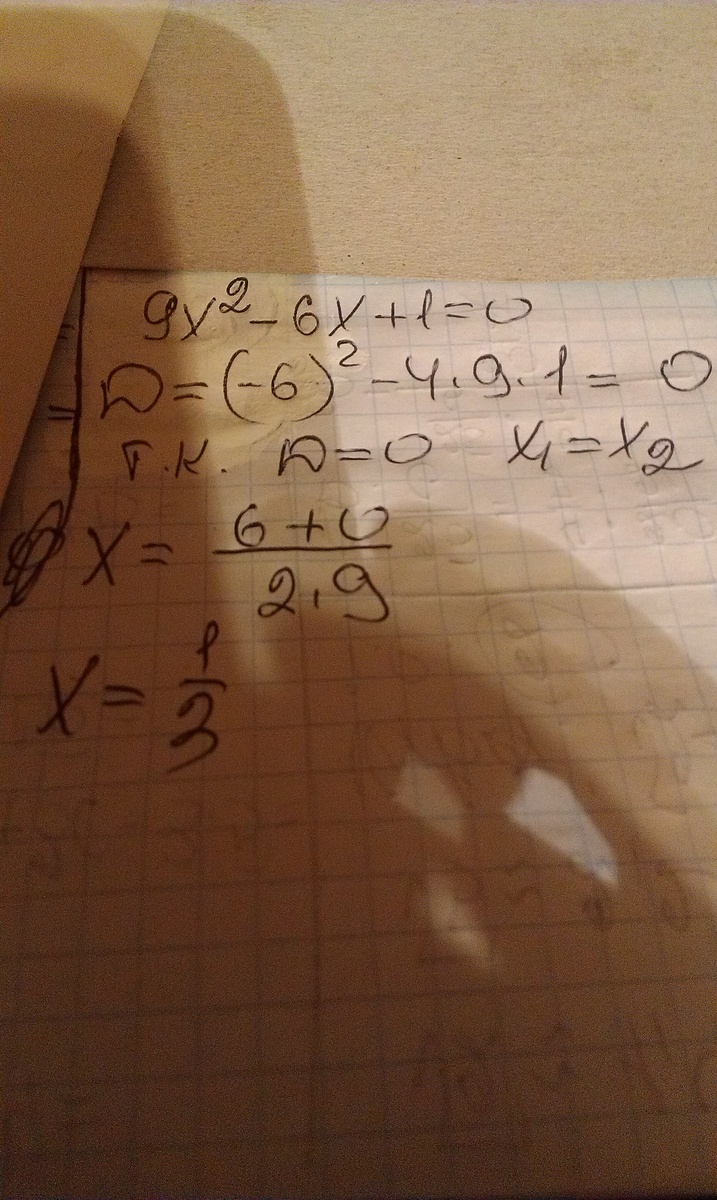 9x² - 6x + 1 = 0
D = (-6)² - 4 · 9 · 1 = 0
т.к. D = 0 x₁ = x₂
x = (6 + 0) / (2 · 9)
x = 1/3